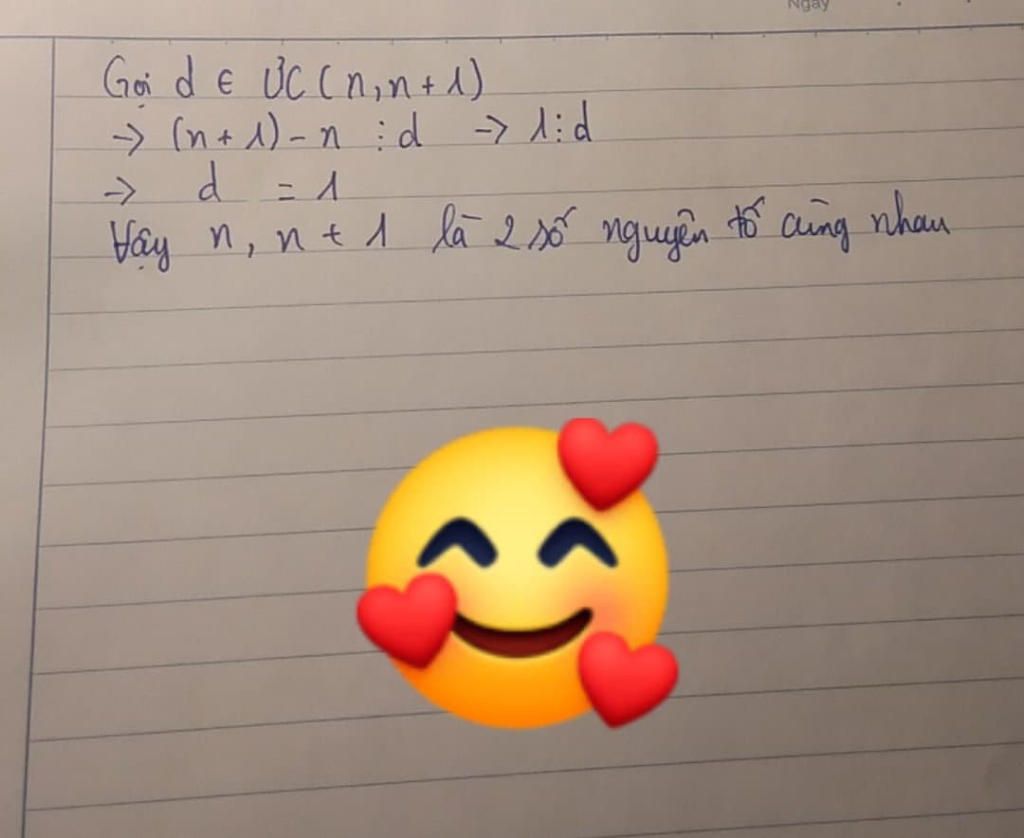 Ngày
Gọi d ∈ ƯC(n, n + 1)
-> (n + 1) - n ⋮ d -> 1 ⋮ d
-> d = 1
Vậy n, n + 1 là 2 số nguyên tố cùng nhau